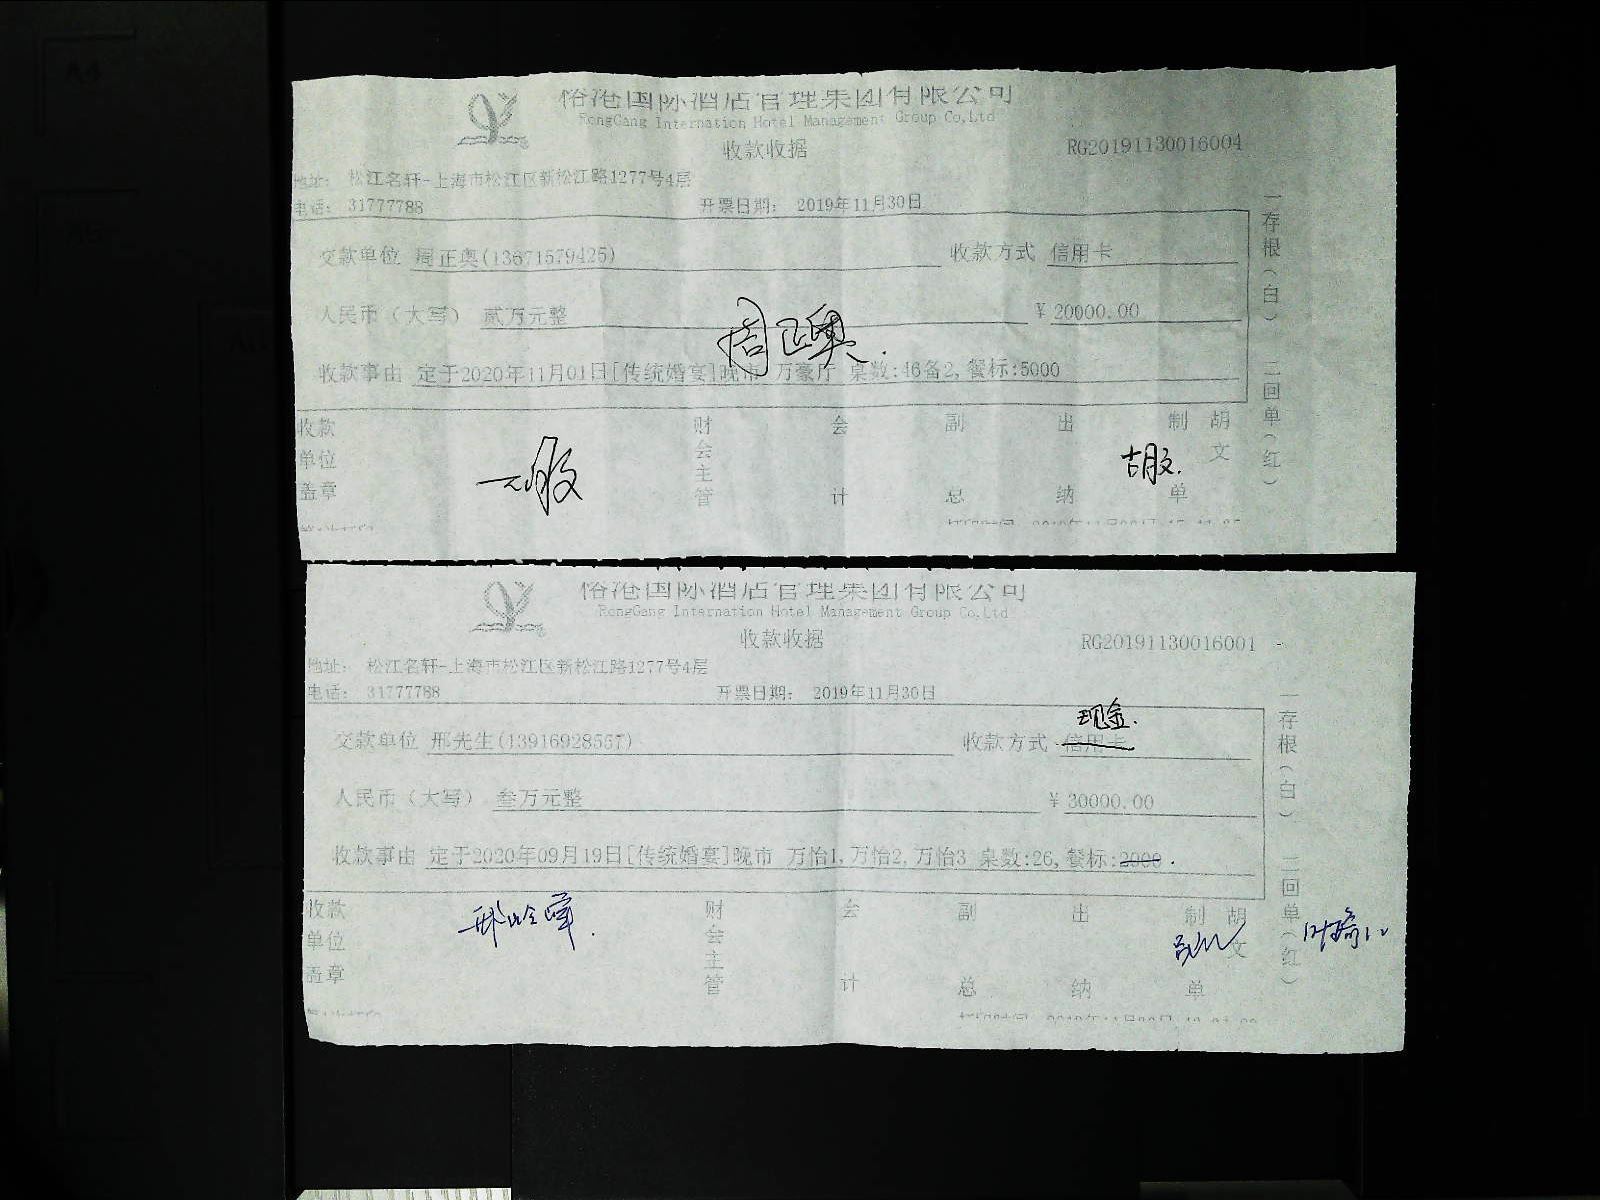 国际酒店管理集团有限公司
RongGang Internation Hotel Management Group Co.Ltd
收款收据
RG20191130016004
地址： 松江名轩-上海市松江区新松江路1277号4层
电话： 31777788 开票日期： 2019年11月30日
交款单位 周正奥(13671579425) 收款方式 信用卡
人民币（大写） 贰万元整 ￥20000.00
周正奥.
收款事由 定于2020年11月01日[传统婚宴]晚市 万豪厅 桌数:46备2,餐标:5000
收款单位盖章 财会主管 会计 副总 出纳 制单 胡文
胡文.
一存根(白) 二回单(红)
国际酒店管理集团有限公司
RongGang Internation Hotel Management Group Co.Ltd
收款收据
RG20191130016001
地址： 松江名轩-上海市松江区新松江路1277号4层
电话： 31777788 开票日期： 2019年11月30日
现金.
交款单位 邢先生(13916928557) 收款方式 信用卡
人民币（大写） 叁万元整 ￥30000.00
收款事由 定于2020年09月19日[传统婚宴]晚市 万怡1,万怡2,万怡3 桌数:26,餐标:2000.
收款单位盖章 财会主管 会计 副总 出纳 制单 胡文
一存根(白) 二回单(红)